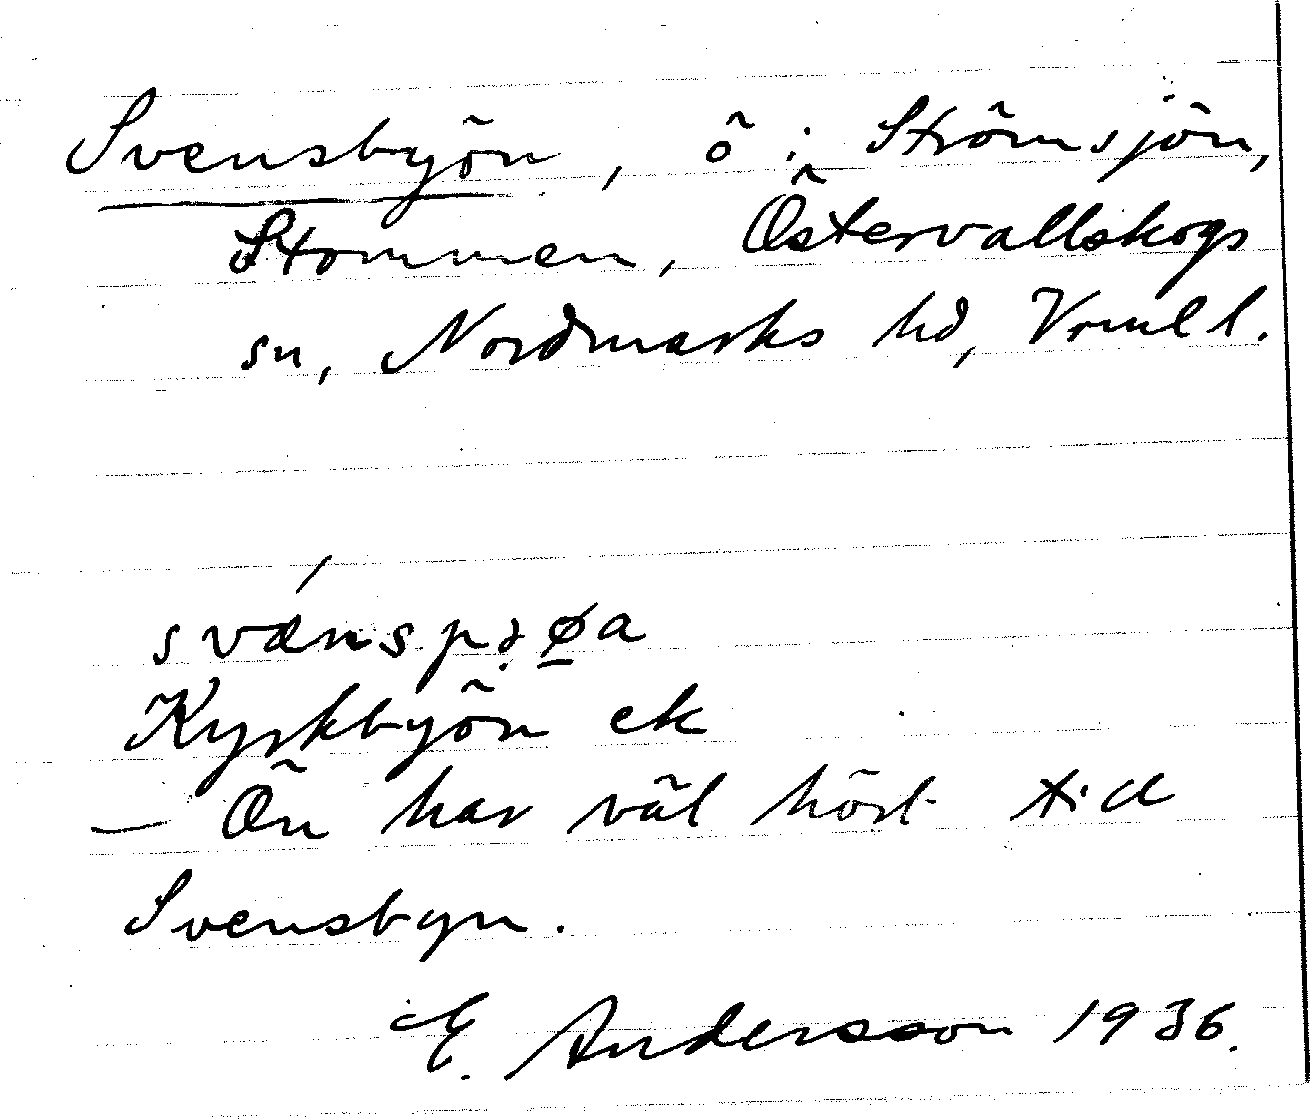 Svensbyön, ö i Strömsjön,
Stommen, Östervallskogs
sn, Nordmarks hd, Vrml l.
Kyrkbyön ek
— Ön har väl hört tid
Svensbyn.
E. Andersson 1936.